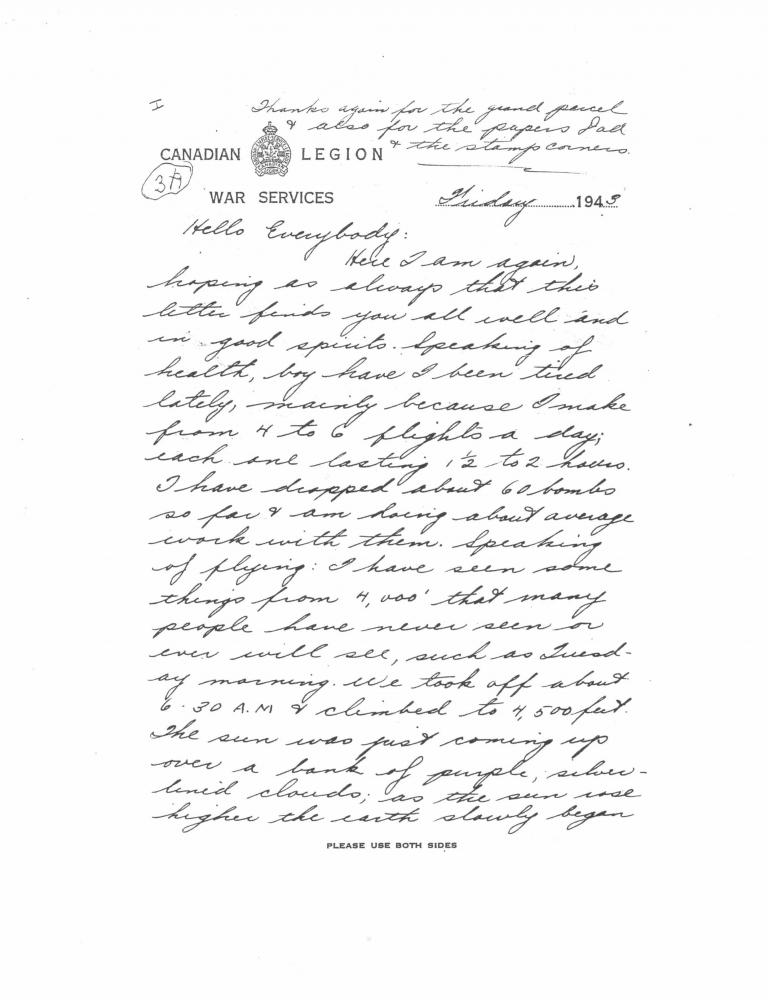 I
Thanks again for the grand parcel
& also for the papers Dad
& the stamp corners.
CANADIAN LEGION
3A
WAR SERVICES
Friday 1943
Hello Everybody:
Here I am again,
hoping as always that this
letter finds you all well and
in good spirits. Speaking of
health, boy have I been tired
lately, mainly because I make
from 4 to 6 flights a day;
each one lasting 1½ to 2 hours.
I have dropped about 60 bombs
so far & am doing about average
work with them. Speaking
of flying: I have seen some
things from 4,000' that many
people have never seen or
ever will see, such as Tuesd-
ay morning. We took off about
6.30 A.M & climbed to 4,500 feet.
The sun was just coming up
over a bank of purple, silver-
lined clouds; as the sun rose
higher the earth slowly began
PLEASE USE BOTH SIDES